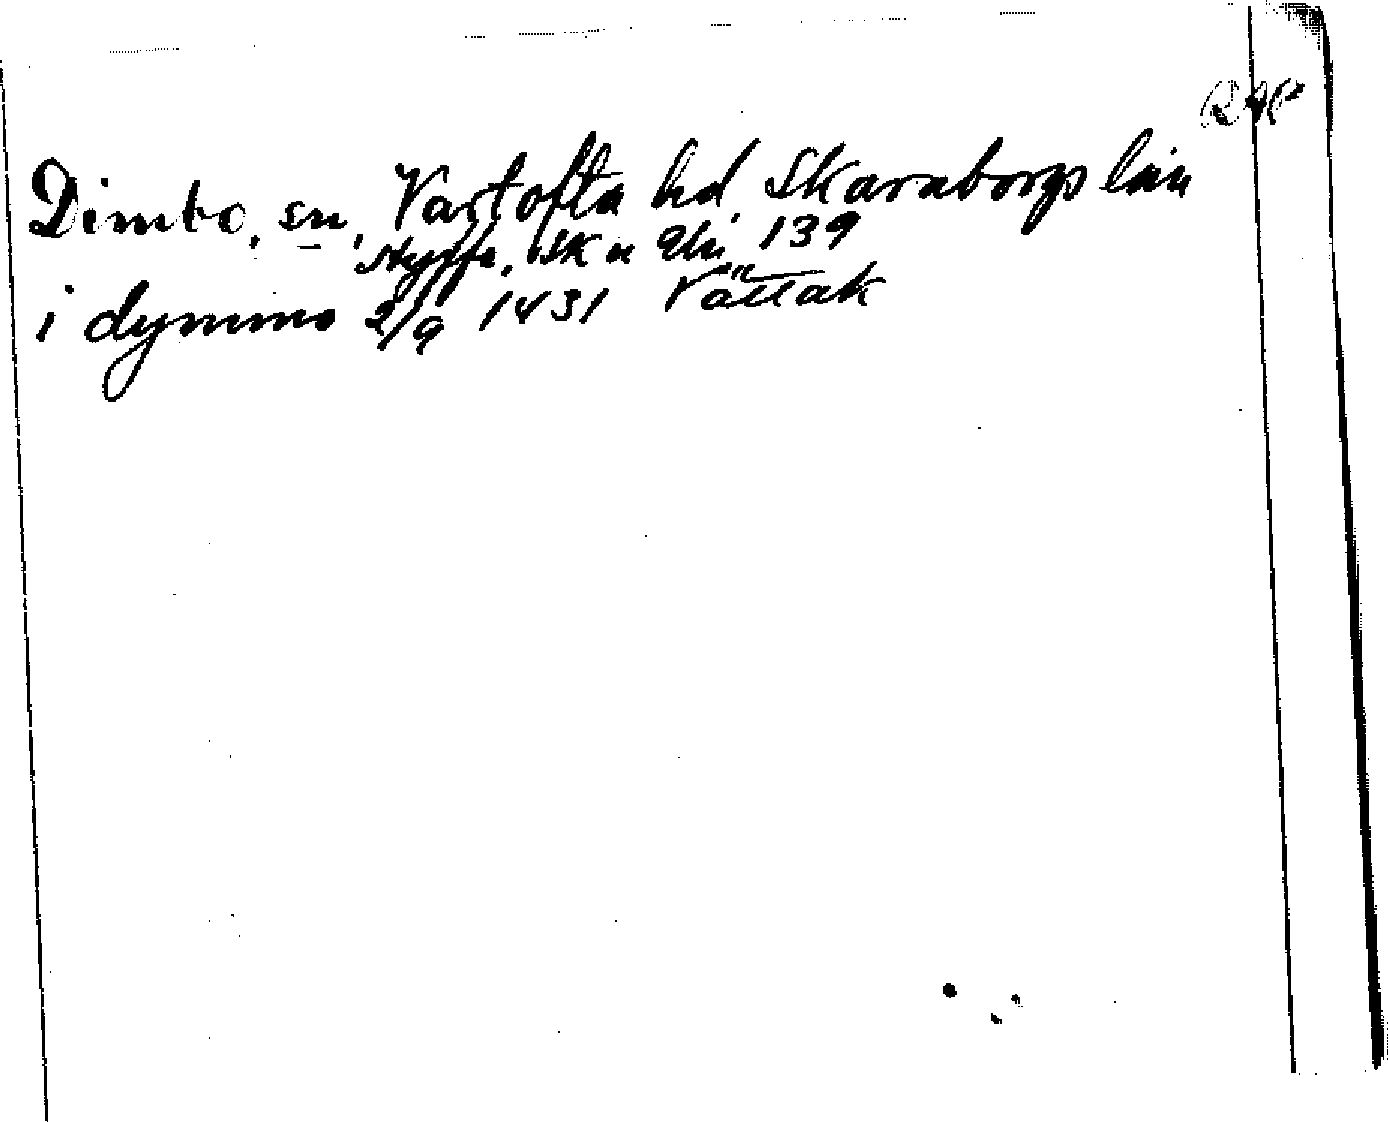 Dimbo, sn, Vartofta hd, Skaraborgs län
SK 139
i dymmo 2/9 1431 Vättak